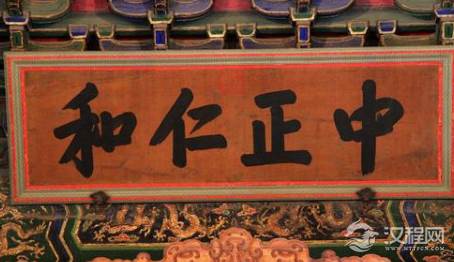 中正仁和
汉程网
WWW.HTTPCN.COM